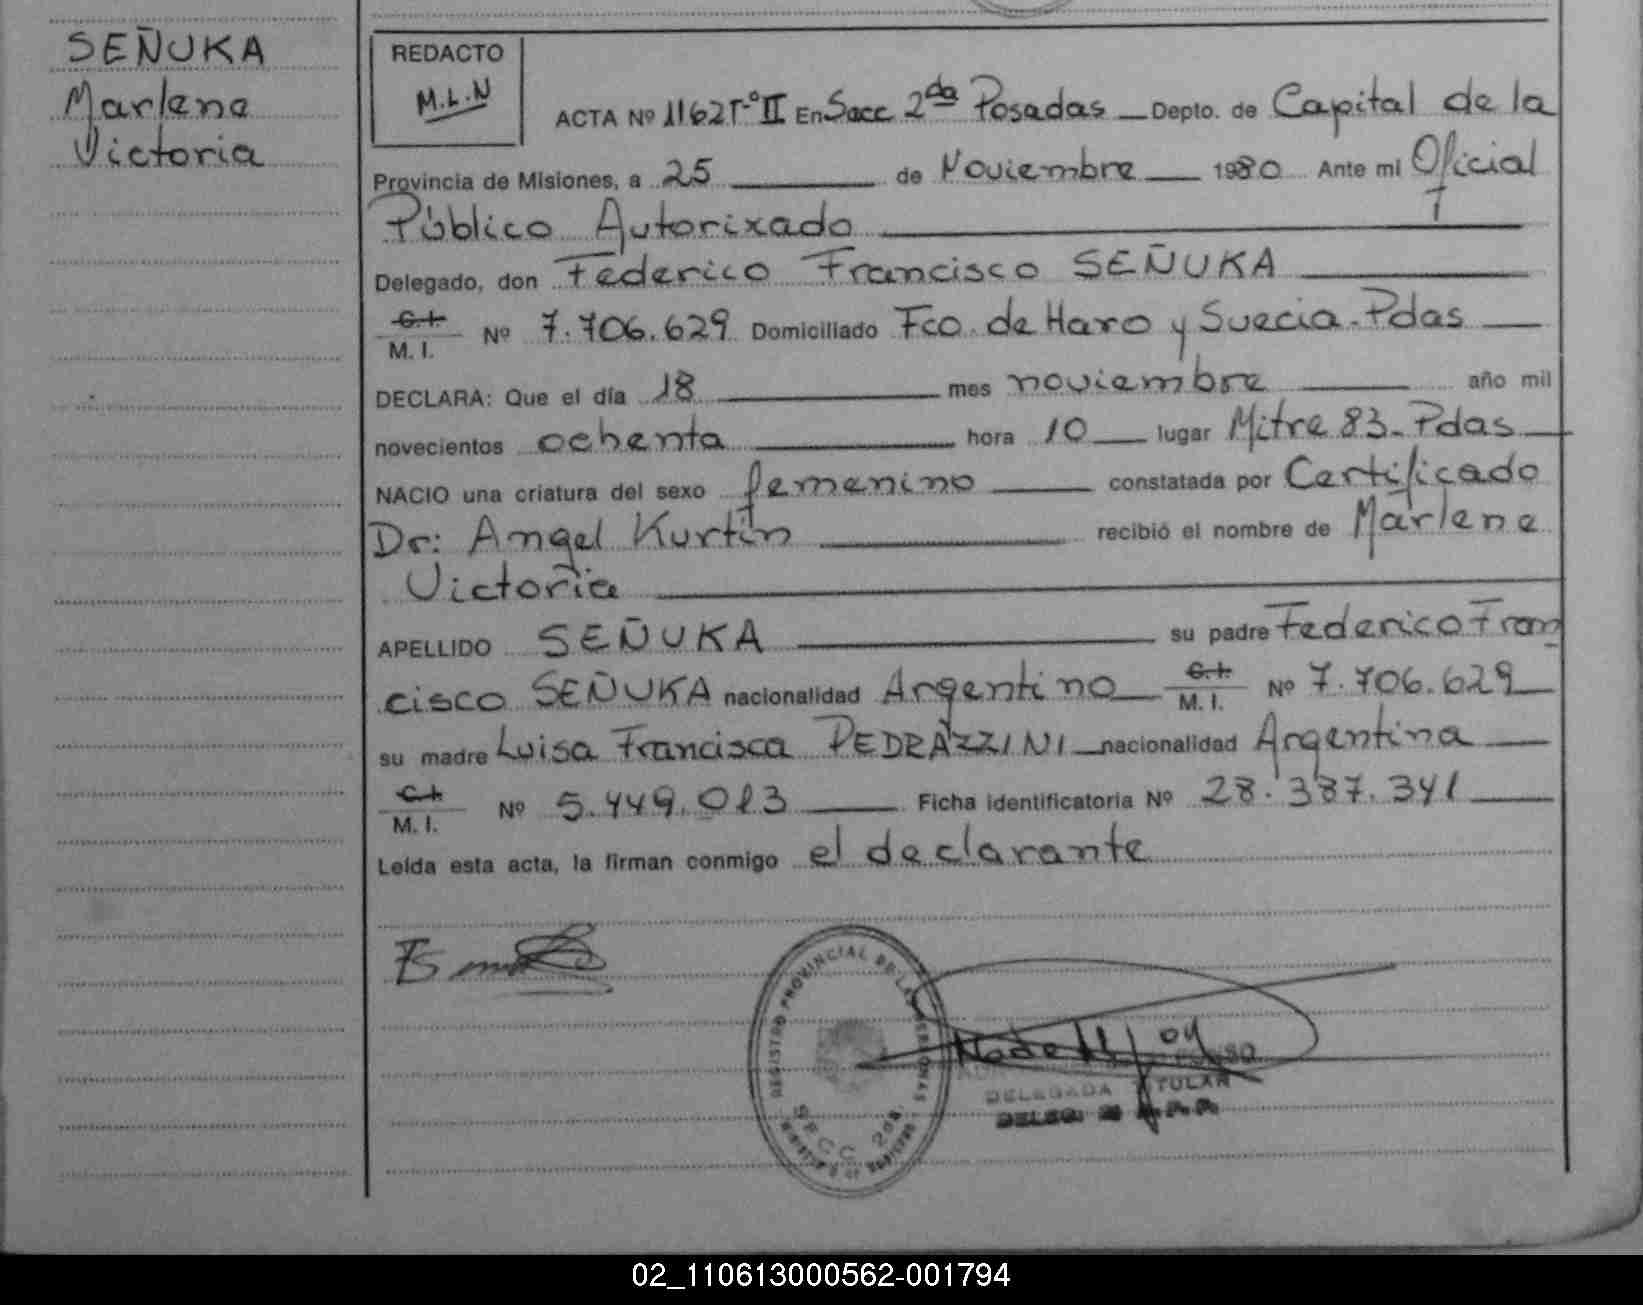 SEÑUKA
Marlene
Victoria
REDACTO
M.L.N
ACTA Nº 1162 Tº II En Secc 2da Posadas Depto. de Capital de la
Provincia de Misiones, a 25 de Noviembre 1980 Ante mi Oficial
Público Autorixado
Delegado, don Federico Francisco SEÑUKA
C.I.
M. I. Nº 7.706.629 Domiciliado Fco. de Haro y Suecia. Pdas
DECLARA: Que el día 18 mes noviembre año mil
novecientos ochenta hora 10 lugar Mitre 83. Pdas
NACIO una criatura del sexo femenino constatada por Certificado
Dr: Angel Kurtin recibió el nombre de Marlene
Victoria
APELLIDO SEÑUKA su padre Federico Fran
cisco SEÑUKA nacionalidad Argentino C.I.
M. I. Nº 7.706.629
su madre Luisa Francisca PEDRAZZINI nacionalidad Argentina
C.I.
M. I. Nº 5.449.013 Ficha identificatoria Nº 28.387.341
Leída esta acta, la firman conmigo el declarante
REGISTRO PROVINCIAL DE LAS PERSONAS
SECC. 2da.
DELEGADA TITULAR
02_110613000562-001794